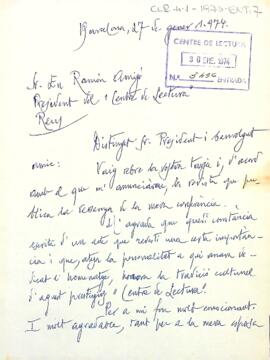 CLR-4-1-1974-ENT-7
Barcelona, 27 de gener 1.974.
CENTRE DE LECTURA
30 ENE. 1974
ENTRADA
Sr. En Ramón Amigó
President del "Centre de Lectura"
Reus
Distingit Sr. President i benvolgut
amic:
Vaig rebre la vostra i, d'acord
amb el que m'anunciàveu, la revista que pu-
blica la ressenya de la meva conferència.
M'agrada que quedi constància
escrita d'un acte que revestí una certa importàn-
cia i que, atesa la personalitat a qui anava de-
dicat l'homenatge, honora la tradició cultural
d'aquest prestigiós "Centre de Lectura".
Per a mi fou molt emocionant.
I molt agradable, tant per a la meva esposa